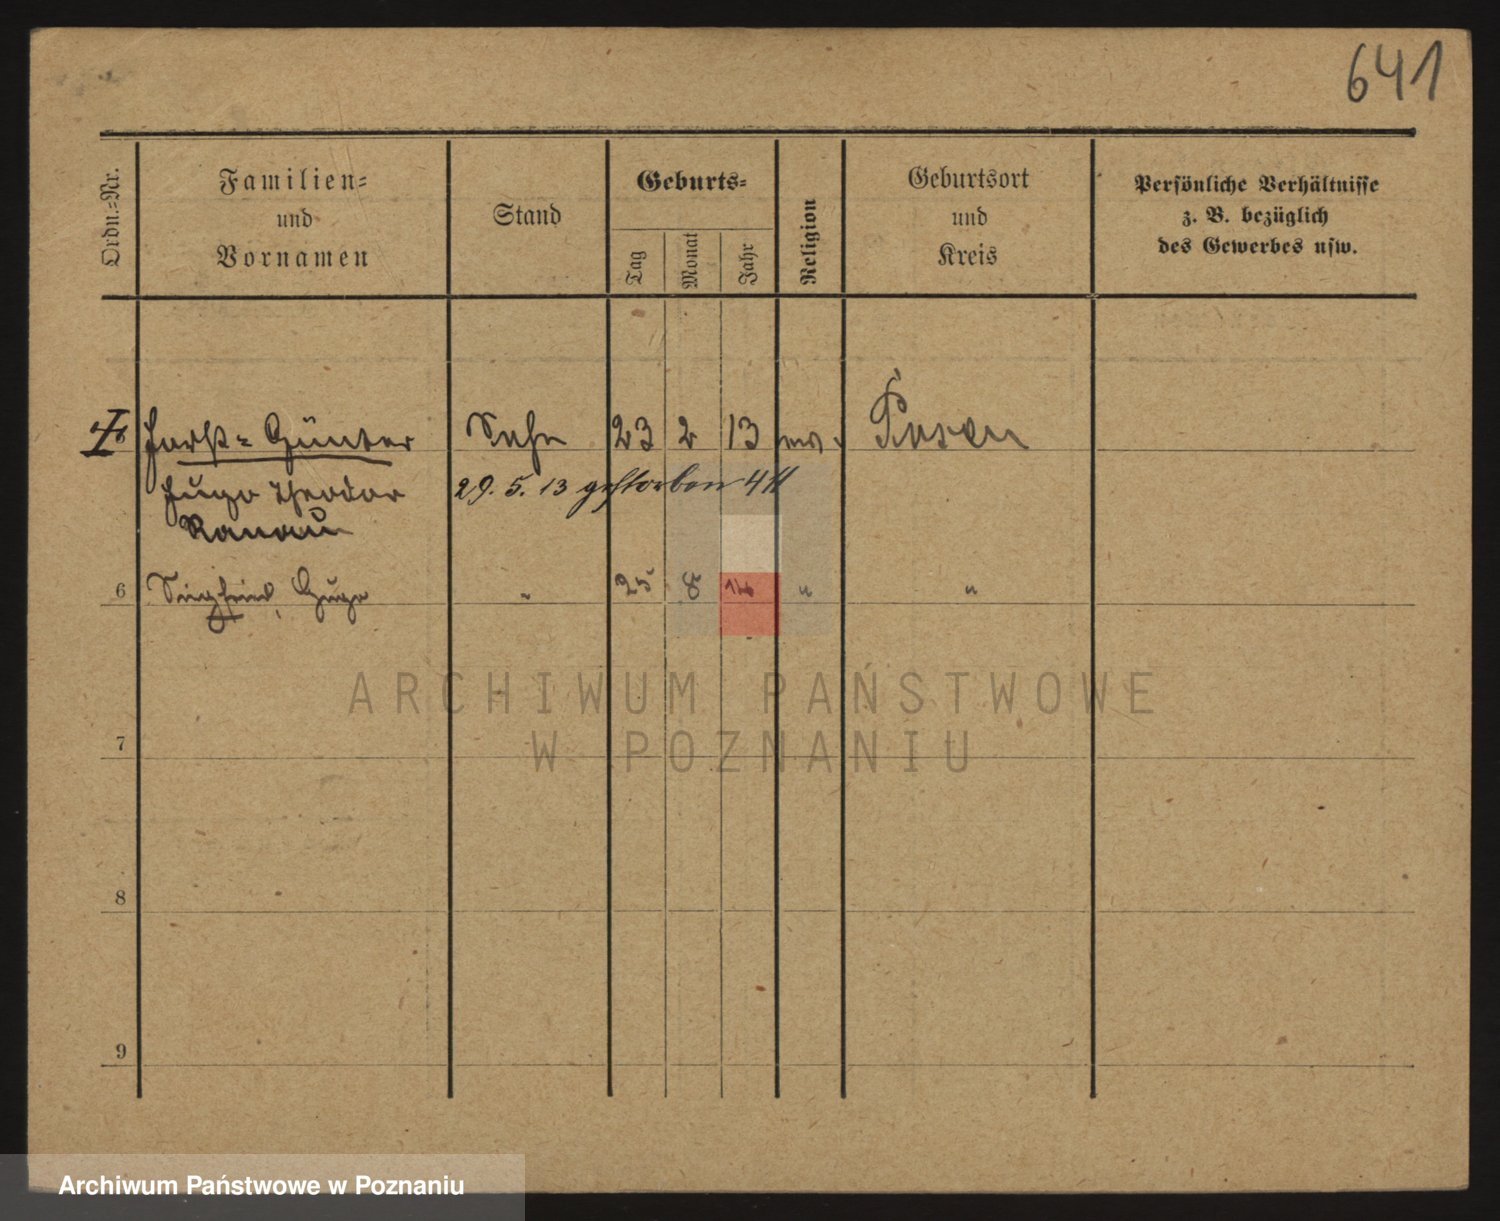 641
Ordn.=Nr.
Familien=
und
Vornamen
Stand
Geburts=
Tag
Monat
Jahr
Religion
Geburtsort
und
Kreis
Persönliche Verhältnisse
z. B. bezüglich
des Gewerbes usw.
Horst=Günter Sohn 23 2 13 Posen
Hugo Theodor 29. 5. 13 gestorben
6 Siegfried, Hugo " 25 8 " "
7
8
9
ARCHIWUM PAŃSTWOWE
W POZNANIU
Archiwum Państwowe w Poznaniu